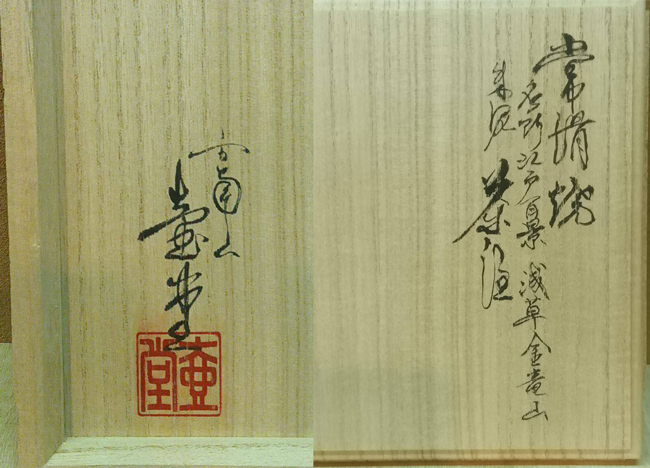 常滑焼
名所江戸百景 浅草金竜山
朱泥 茶注
壷堂
壷堂